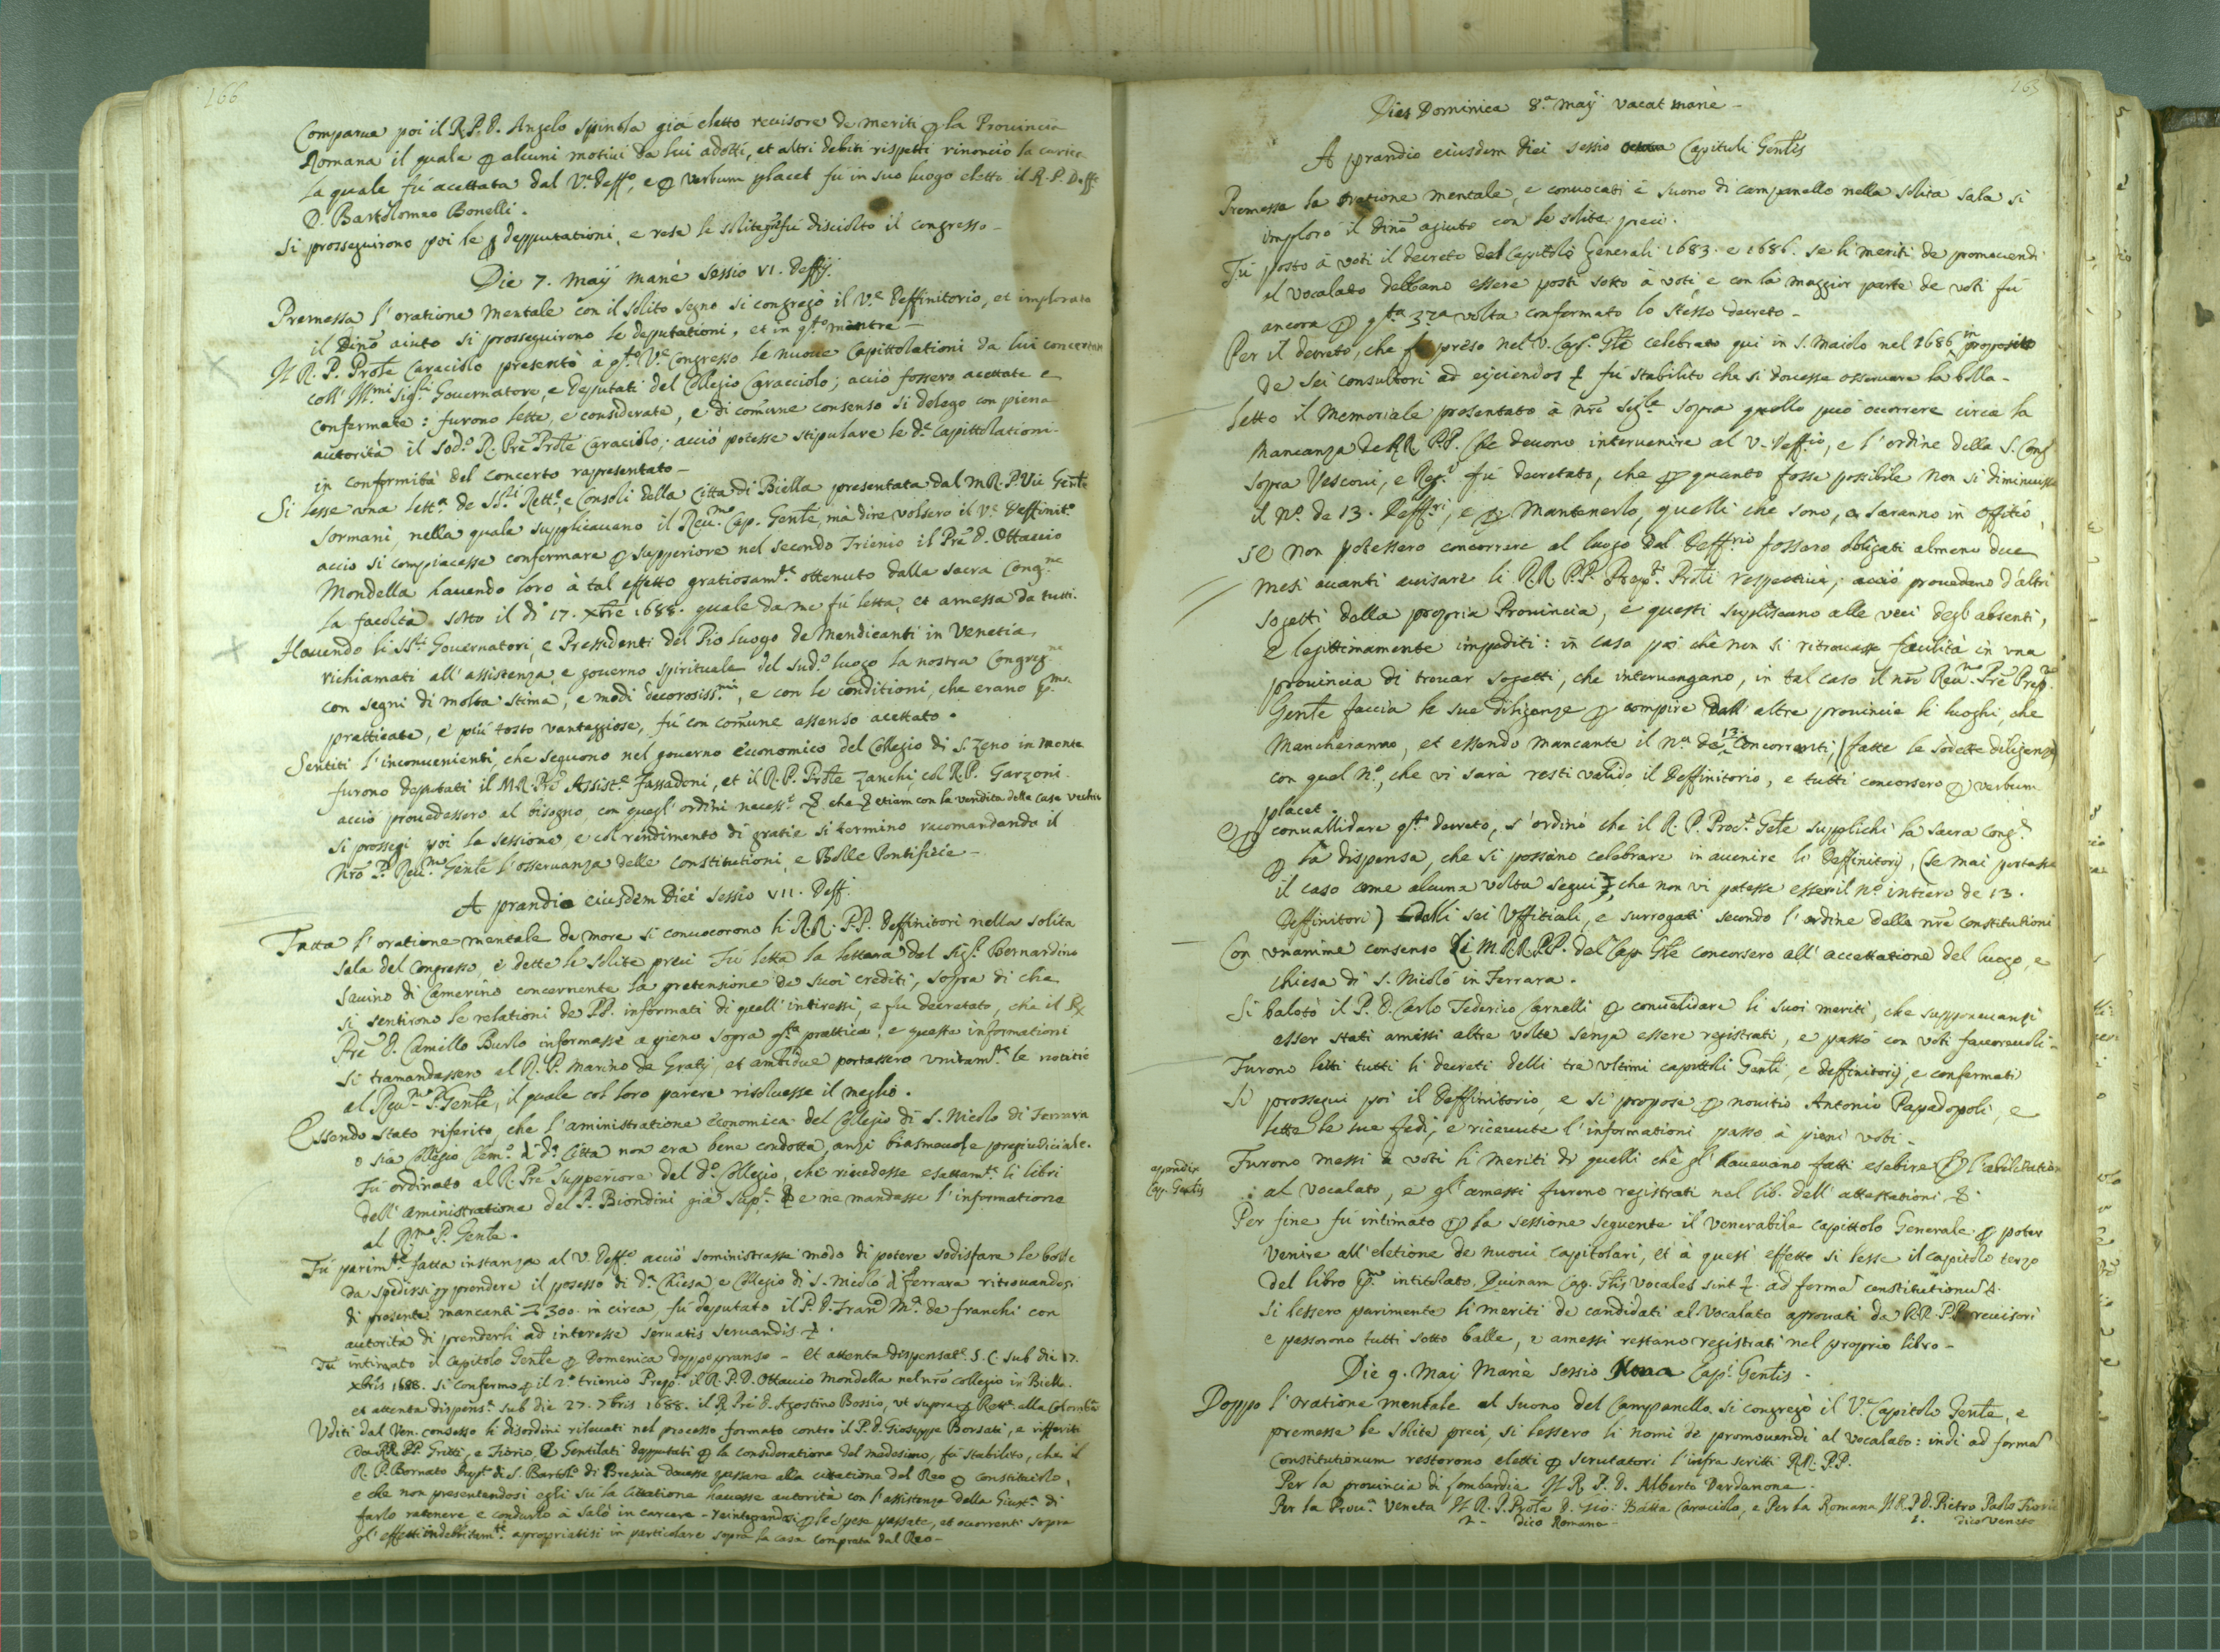 166
Comparue poi il R. P. D. Angelo Spinola già eletto reuisore de meriti p la Prouincia
Romana il quale p alcuni motiui da lui adotti, et altri debiti rispetti rinonciò la carica
la quale fù acettata dal V. Deffo, e p verbum placet fu in suo luogo eletto il R. P. Deffe
D. Bartolomeo Bonelli.
Si prosseguirono poi le deputationi, e rese le solite gre fù disciolto il congresso -
Die 7. maij manè sessio VI. deffij.
Premessa l'oratione mentale con il solito segno si congregò il Ve deffinitorio, et implorato
il Dino aiuto si prosseguirono le deputationi, et in qto mentre -
Il R. P. Prote Caraciolo presentò à qto Ve Congresso le nuoue Capittolationi da lui concertate
coll' Illmi Sigri Gouernatore, e Deputati del Collegio Caracciolo; acciò fossero acettate e
confermate: furono lette, e considerate, e di comune consenso si delegò con piena
autorità il sodo R. Pre Prote Caraciolo; acciò potesse stipulare le de Capittolationi.
in conformità del concerto rapresentato -
Si lesse vna letta de SSri Rette, e Consoli della Citta di Biella presentata dal m R. P. Vic Gente
Sormani, nella quale supplicauano il Reumo Cap. Gente, mà dire volsero il Ve Deffinito
acciò si compiacesse confermare p supperiore nel secondo Trienio il Pre D. Ottauio
Mondella hauendo loro à tal effetto gratiosamte ottenuto dalla sacra Congne
la facoltà sotto il dì 17. Xbre 1688. quale da me fù letta, et amessa da tutti.
Hauendo li SSri Gouernatori, e Pressidenti del Pio luogo de Mendicanti in Venetia,
richiamati all'assistenza, e gouerno spirituale del sudo luogo la nostra Congregne
con segni di molta stima, e modi decorosissmi, e con le conditioni, che erano pma
pratticate, e più tosto vantaggiose, fù con comune assenso acettato.
Sentiti l'inconuenienti, che seguono nel gouerno economico del Collegio di S. Zeno in monte
furono deputati il M R. Pre Assiste Fassadoni, et il R. P. Prote Zanchi, col R. P. Garzoni.
acciò prouedessero al bisogno, con quegl'ordini necess.i che etiam con la vendita delle case vechie
Si prossegì poi la sessione, e col rendimento di gratie si terminò racomandando il
Nro P. Reumo Gente l'osseruanza delle Constitutioni e Bolle Pontificie -
A prandio eiusdem Diei sessio VII. Deff.
Fatta l'oratione mentale de more si conuocorono li R.R. P.P. Deffinitori nella solita
sala del Congresso, e dette le solite preci Fù letta la lettera del Sigr Bernardino
Sauino di Camerino concernente la pretensione de suoi crediti, sopra di che
si sentirono le relationi de PP. informati di quell'intiressi, e fu decretato, che il R
Pre D. Camillo Burlo informasse a pieno sopra qta prattica, e queste informationi
si tramandassero al R. P. Marino de Gratij, et ambidue portassero vnitamte le notitie
al Reumo P. Gente, il quale col loro parere risoluesse il meglio.
Essendo stato riferito, che l'aministratione economica del Collegio di S. Nicolo di Ferrara
o sia Collegio Cleme di da Citta non era bene condotta, anzi biasmeuole pregiudiciale.
Fù ordinato al R. Pre Supperiore del do Collegio, che riuedesse esattamte li libri
dell'aministratione del P. Biondini già Supe e ne mandasse l'informatione
al Rmo P. Gente.
Fù parimte fatta instanza al V. Deffo acciò soministrasse modo di potere sodisfare le bolle
da spedirsi p prendere il possesso di da Chiesa e Collegio di S. Nicolo di Ferrara ritrouandosi
di presente mancanti 300. in circa fù deputato il P. D. Franco Ma de franchi con
autorità di prenderli ad interesse seruatis seruandis.
Fù intimato il Capitolo Gente p Domenica doppo pranso - Et attenta dispensate. S. C. sub die 17.
Xbris 1688. si confermò p il 2o trienio Prepo il R. P. D. Ottauio Mondella nel nro collegio in Biella.
et attenta dispense sub die 27. 7bris 1688. il R. Pre D. Agostino Bossio, vt supra p Rette alla Colombina
Vditi dal Ven. consesso li disordini rileuati nel processo formato contro il P. D. Gioseppe Borsati, e rifferiti
da RR. PP. Gritti, e Fiorio, Gentilati deputati p la consideratione del medesimo, fù stabilito, che il
R. P. Bornato Prepto di S. Bartolo di Brescia douesse passare alla cittatione del Reo p constituirlo,
e che non presentandosi egli su la cittatione hauesse autorità con l'assistenza della Giusta di
farlo ratenere e condurlo à Salò in carcere - reintegrandosi p le spese passate, et ocorrenti sopra
gl'effetti indebitamte apropriatisi in particolare sopra la casa comprata dal Reo -
Dies Dominica 8.a maij vacat manè -
A prandio eiusdem diei sessio Capituli Gentis
Premessa la oratione mentale, e conuocati è suono di campanello nella solita sala si
implorò il dino agiuto con le solite preci.
Fù posto à voti il decreto del Capitolo Generali 1683. e 1686. se li meriti de promouendi
al vocalato debbano essere posti sotto à voti, e con la maggior parte de voti fù
ancora p qta 3za volta confermato lo stesso decreto -
Per il decreto, che fu preso nel V. Capo Gle celebrato qui in S. Maiolo nel 1686 in proposito
de sei consultori ad eijciendos fù stabilito che si douesse osseruare la bolla -
Letto il Memoriale presentato à nre Sigle sopra quello può ocorrere circa la
mancanza de RR. P.P. che deuono interuenire al V. Deffio, e l'ordine della S. Cong
sopra Vescoui, e Rego fù decretato, che p quanto fosse possibile non si diminuisse
il No de 13. Deffri, e p mantenerlo, quelli che sono, o saranno in offitio,
se non potessero concorrere al luogo del Deffrio fossero obligati almeno due
mesi auanti auisare li R.R P.P. Prepti Proti respettiui; acciò prouedano d'altri
sogetti dalla propria Prouincia, e questi supliscano alle veci degl' absenti,
e legittimamente impediti: in caso poi che non si ritrouasse facilità in vna
prouincia di trouar sogetti, che interuengano, in tal caso il nro Reumo Pre Prepo
Gente faccia le sue diligenze p compire dall' altre prouincie li luoghi che
mancheranno, et essendo mancante il no de 13. Concorrenti, (fatte le sodette diligenze)
con quel No, che vi sarà resti valido il Deffinitorio, e tutti concorsero p verbum
placet.
e p conuallidare qto decreto, s'ordinò che il R. P. Proce Gete supplichi la sacra Conge
p la dispensa, che si possino celebrare in auenire li Deffinitorij, (se mai portasse
il caso come alcuna volta seguì, che non vi potesse esser il no intiero de 13.
Deffinitori) dalli sei Vffitiali, e surrogati secondo l'ordine delle nre constitutioni
Con vnanime consenso li M.R.R.P.P. del Cap. Gle concorsero all'accettatione del luogo, e
chiesa di S. Nicolò in Ferrara.
Si balotò il P. D. Carlo Federico Carnelli p conualidare li suoi meriti, che supponeuansi
esser stati amessi altre volte senza essere registrati, e passò con voti fauoreuoli -
Furono letti tutti li decreti delli tre vltimi capittoli Genti, e deffinitorij, e confermati
Si prosseguì poi il Deffinitorio, e si propose p nouitio Antonio Papadopoli, e
lette le sue fedi, e riceuute l'informationi passò à pieni voti -
apendix
Cap. Gentis
Furono messi à voti li meriti di quelli che gl'haueuano fatti esebire p l'abilitatione
al vocalato, e gl'amessi furono registrati nel lib. dell'attestationi.
Per fine fù intimato p la sessione seguente il venerabile capittolo Generale p poter
venire all'eletione de nuoui capitolari, et à quest' effetto si lesse il capitolo terzo
del libro pmo intitolato. Quinam Cap. Glis Vocales sint. ad forma constitutionu.
Si lessero parimente li meriti de candidati al Vocalato aprouati da RR. P.P. reuisori
e passorono tutti sotto balle, e amessi restano registrati nel proprio libro -
Die 9. Maij Manè sessio Nona Capi Gentis.
Doppo l'oratione mentale al suono del Campanello. si congregò il Ve Capitolo Gente, e
premesse le solite preci, si lessero li nomi de promouendi al vocalato: indi ad forma
Constitutionum restorono eletti p scrutatori l'infra scritti RR. P.P.
Per la prouincia di Lombardia Il R. P. D. Alberto Dardanone.
Per la Proua Veneta Il R. P. Prote D. Gio: Batta Caraciolo, e Per la Romana Il R. P. D. Pietro Paolo Fiorio
2. - dico Romana - 1. dico Veneto